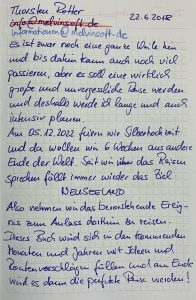 Thorsten Rotter 22.6.2018
info@melvinsoft.de
informationen@melvinsoft.de
Es ist zwar noch eine ganze Weile hin
und bis dahin kann auch noch viel
passieren, aber es soll eine wirklich
große und unvergessliche Reise werden
und deshalb werde ich lange und auch
intensiv planen.
Am 05.12.2022 feiern wir Silberhochzeit
und da wollen wir 6 Wochen ans andere
Ende der Welt. Seit wir über das Reisen
sprechen fällt immer wieder das Ziel
NEUSEELAND
Also nehmen wir das bevorstehende Ereig-
nis zum Anlass dorthin zu reisen.
Dieses Buch wird sich in den kommenden
Monaten und Jahren mit Ideen und
Routenvorschlägen füllen und am Ende
wird es dann die perfekte Reise werden!